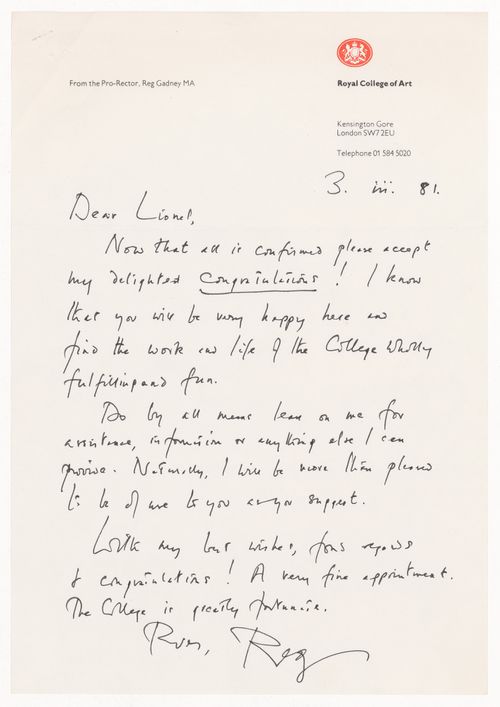 From the Pro-Rector, Reg Gadney MA
Royal College of Art
Kensington Gore
London SW7 2EU
Telephone 01 584 5020
3. iii. 81.
Dear Lionel,
Now that all is confirmed please accept
my delighted Congratulations! I know
that you will be very happy here and
find the work and life of the College wholly
fulfilling and fun.
Do by all means lean on me for
assistance, information or anything else I can
provide. Naturally, I will be more than pleased
to be of use to you as you suggest.
With my best wishes, fond regards
& congratulations! A very fine appointment.
The College is greatly fortunate.
Reg